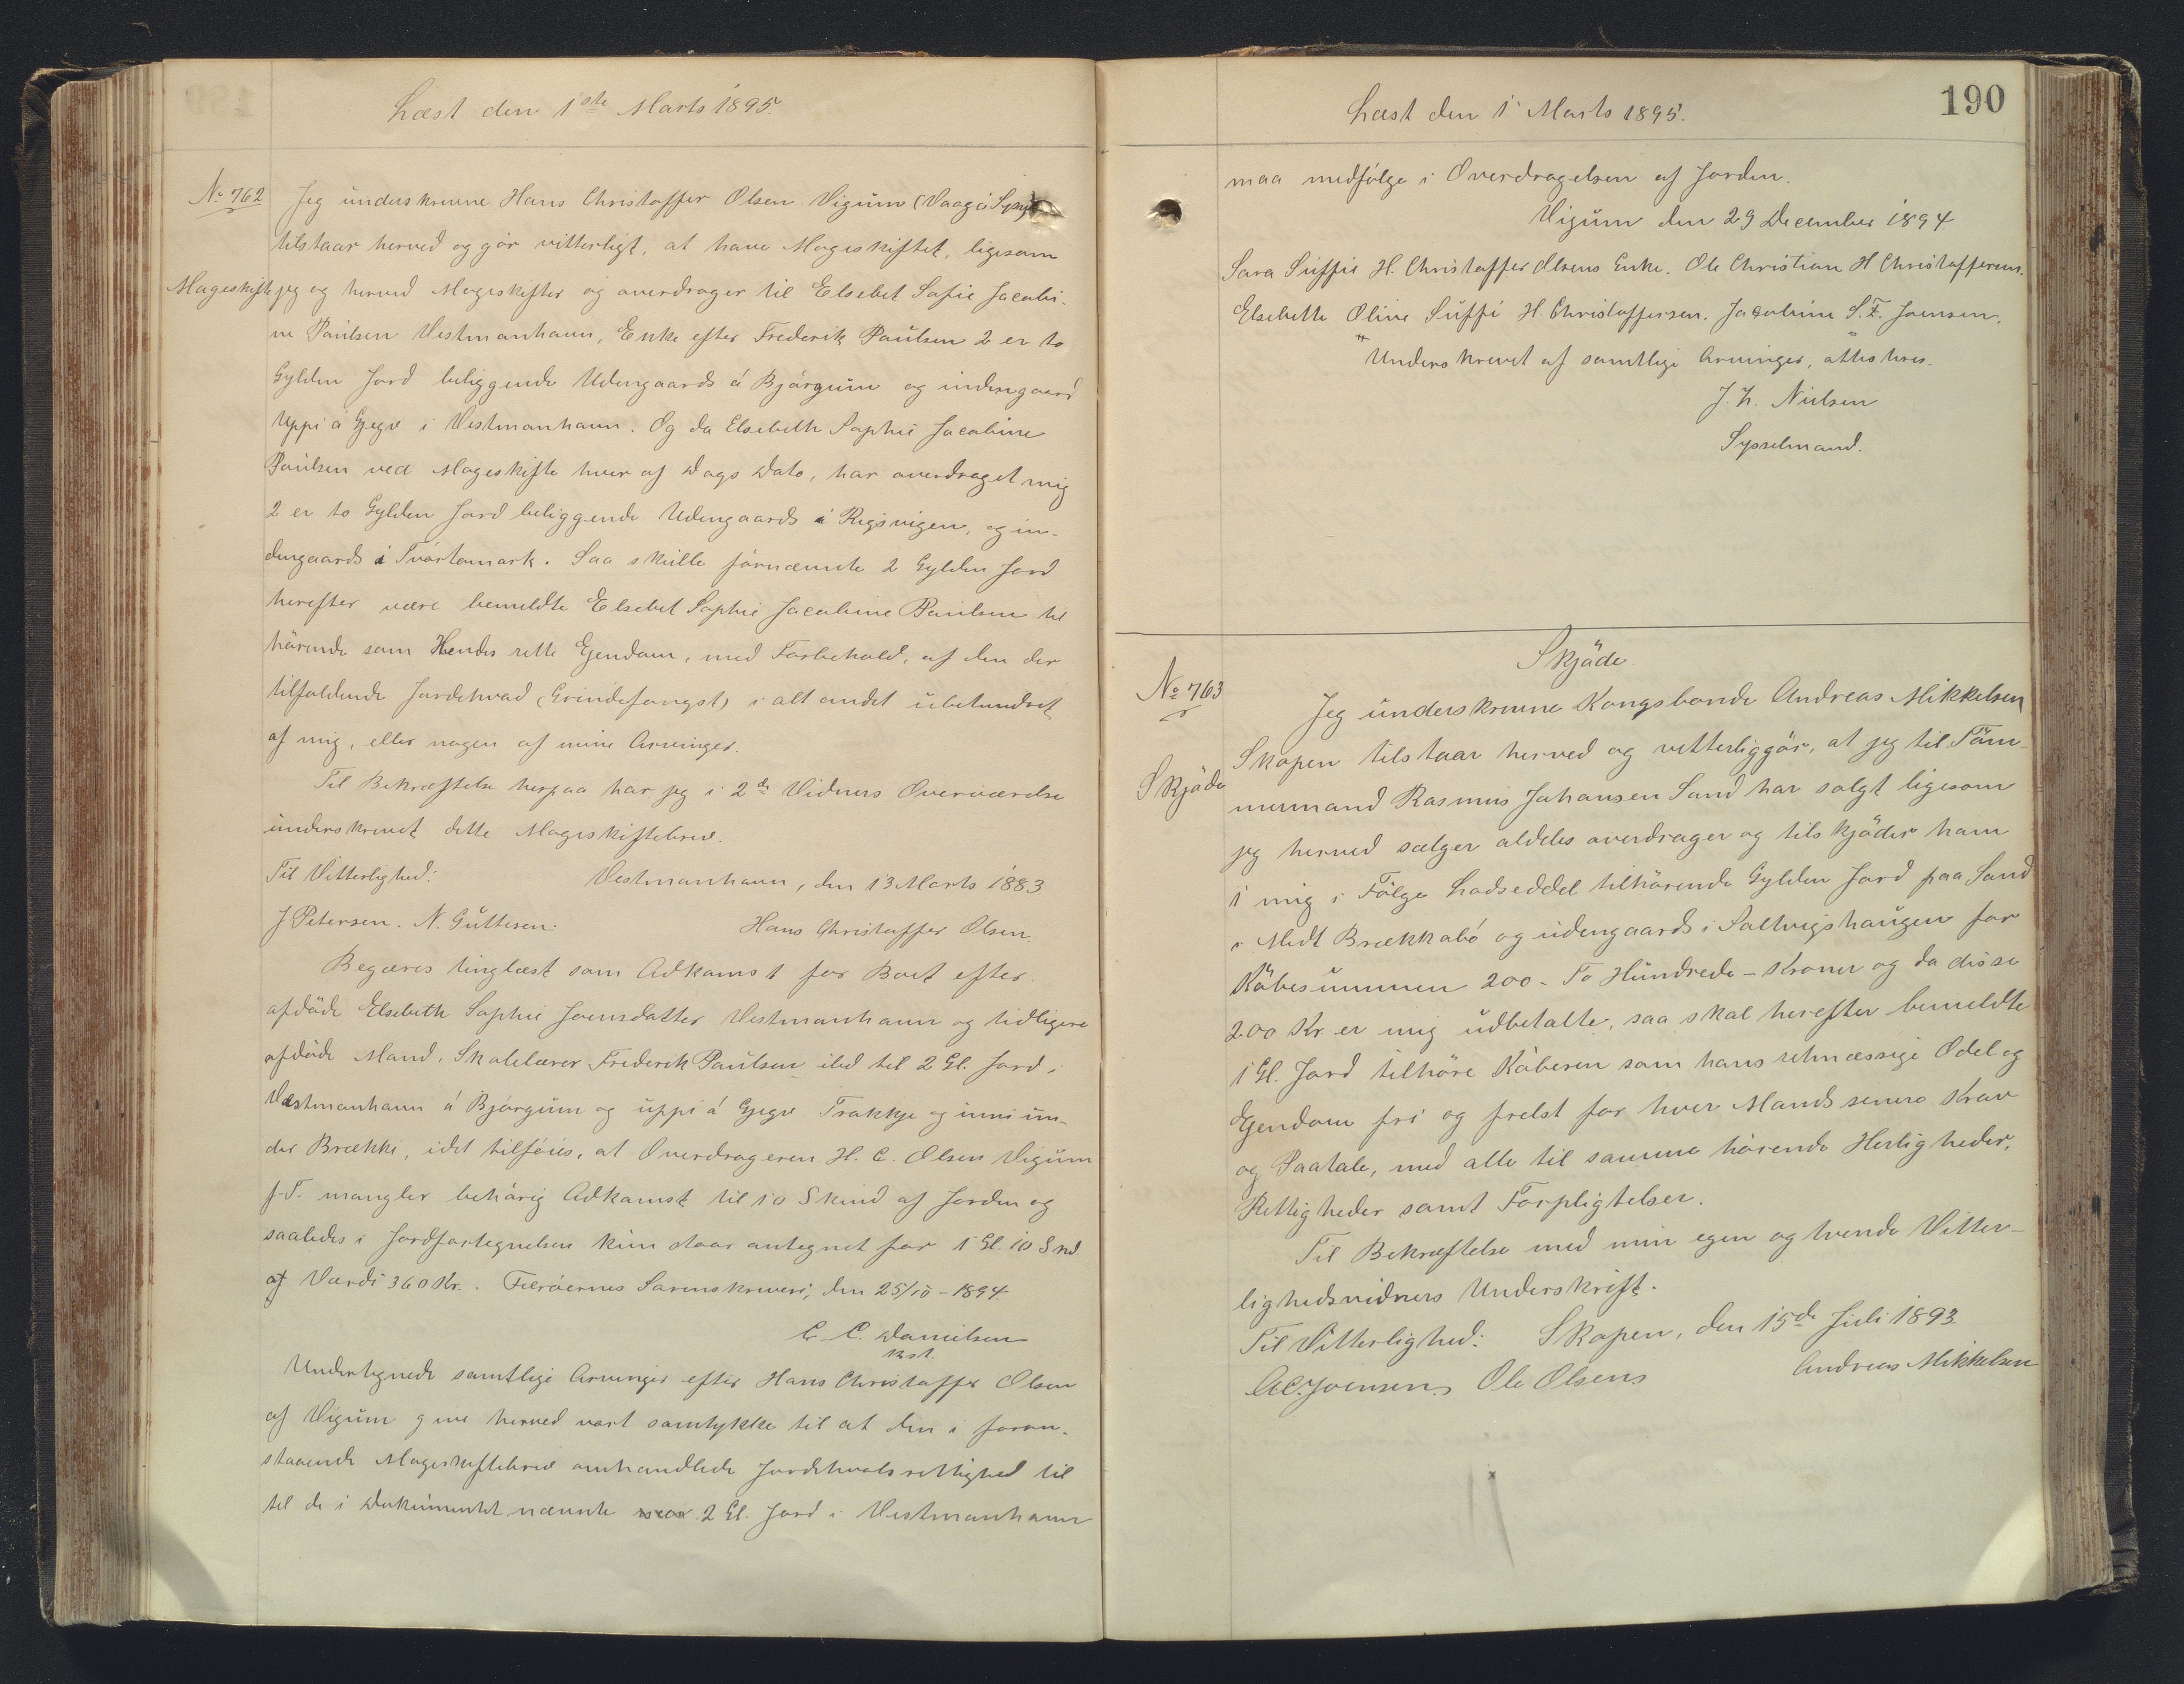 Læst den 1ste Marts 1895.
No 762
Jeg underskrevne Hans Christoffer Olsen Vigum (Vaagö
tilstaar herved og gör vitterligt, at have Mageskiftet, ligesom
Mageskifte
jeg og herved Mageskifter og overdrager til Elsebet Sofie Jacobi-
ne Paulsen Vestmanhavn, Enke efter Frederik Paulsen 2 er to
Gylden Jord beliggende Udengaards á Bjørgum og indengaard
Uppi á Gjegv i Vestmanhavn. Og da Elsebeth Sophie Jacobine
Paulsen ved Mageskifte hver af Dags Dato, har overdraget mig
2 er to Gylden Jord beliggende Udengaards i Regsvigen, og in-
dengaards i Tvørtamark. Saa skulle förnævnte 2 Gylden Jord
herefter være bemeldte Elsebet Sophie Jacobine Paulsen til
hörende som Hendes rette Ejendom, med Forbehold, af den der
tilfaldende Jordehval (Grindefangst) i alt andet ubehindret
af mig, eller nogen af mine Arvinger.
Til Bekræftelse herpaa har jeg i 2de Vidners Overværelse
underskrevet dette Mageskiftebrev.
Til Vitterlighed:
Vestmanhavn, den 13 Marts 1883
J Petersen. N. Guttesen.
Hans Christoffer Olsen.
Begæres tinglæst som Adkomst for Boet efter
afdöde Elsebeth Sophie Joensdatter Vestmanhavn og tidligere
afdöde Mand, Skolelærer Frederik Paulsen ibid til 2 Gl. Jord i
Vestmanhavn á Bjørgum og uppi á Gjegv Trakkje og inni un-
der Brekki, idet tilföies, at Overdrageren H. C. Olsen Vigum
p.T. mangler behörig Adkomst til 10 Skind af Jorden og
saaledes i Jordfortegnelsen kun staar antegnet for 1 Gl. 10 Skd
af Værdi 360 Kr. Færöernes Sorenskriveri, den 25/10 - 1894.
C. C. Danielsen
Kst.
Undertegnede samtlige Arvinger efter Hans Christoffer Olsen
af Vigum give herved vort samtykke til at den i foran-
staaende Mageskiftebrev omhandlede Jordehvalsrettighed til
til de i Dokumentet nævnte 2 Gl. Jord i Vestmanhavn
190
Læst den 1 Marts 1895.
maa medfölge i Overdragelsen af Jorden.
Vigum den 29 December 1894
Sara Suffie H. Christoffer Olsens Enke. Ole Christian H Christoffersen.
Elsebette Olive Suffi H. Christoffersen. Jacobine S. F. Joensen.
Underskrevet af samtlige Arvinger, attesteres.
J. H. Nielsen
Sysselmand.
Skjöde
No 763
Skjöde
Jeg underskrevne Kongsbonde Andreas Mikkelsen
Skopen tilstaar herved og vitterliggör, at jeg til Töm-
mermand Rasmus Johansen Sand har solgt ligesom
jeg herved sælger aldeles overdrager og tilskjöder ham
1 mig i Fölge Lodseddel tilhörende Gylden Jord paa Sand
i Midt Brekkabö og udengaards i Saltvigshaugen for
Köbesummen 200 - To Hundrede - Kroner og da disse
200 Kr er mig udbetalte, saa skal herefter bemeldte
1 Gl. Jord tilhöre Köberen som hans retmæssige Odel og
Ejendom fri og frelst for hver Mands senere Krav
og Paatale, med alle til samme hörende Herligheder,
Rettigheder samt Forpligtelser.
Til Bekræftelse med min egen og tvende Vitter-
lighedsvidners Underskrift.
Til Vitterlighed: Skopen, den 15de Juli 1893
Andreas Mikkelsen
A C. Joensen, Ole Olsen